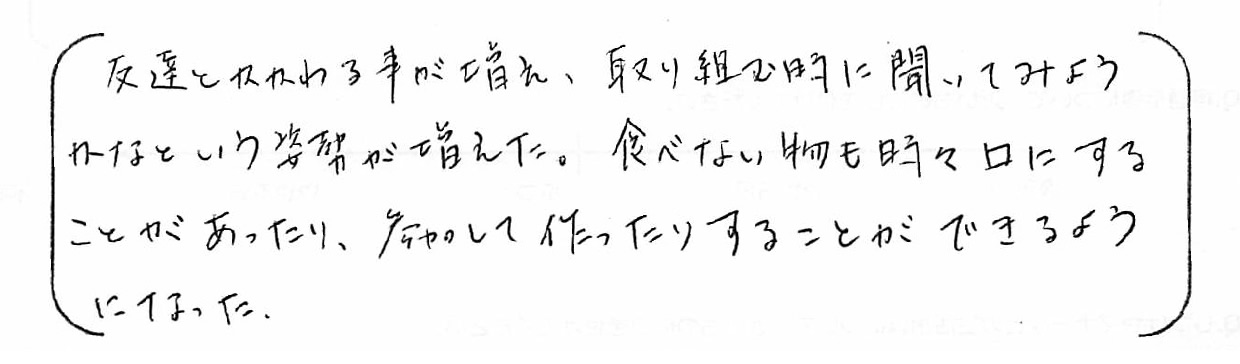 友達とかかわる事が増え、取り組む時に聞いてみよう
かなという姿勢が増えた。食べない物も時々口にする
ことがあったり、参加して作ったりすることができるよう
になった.